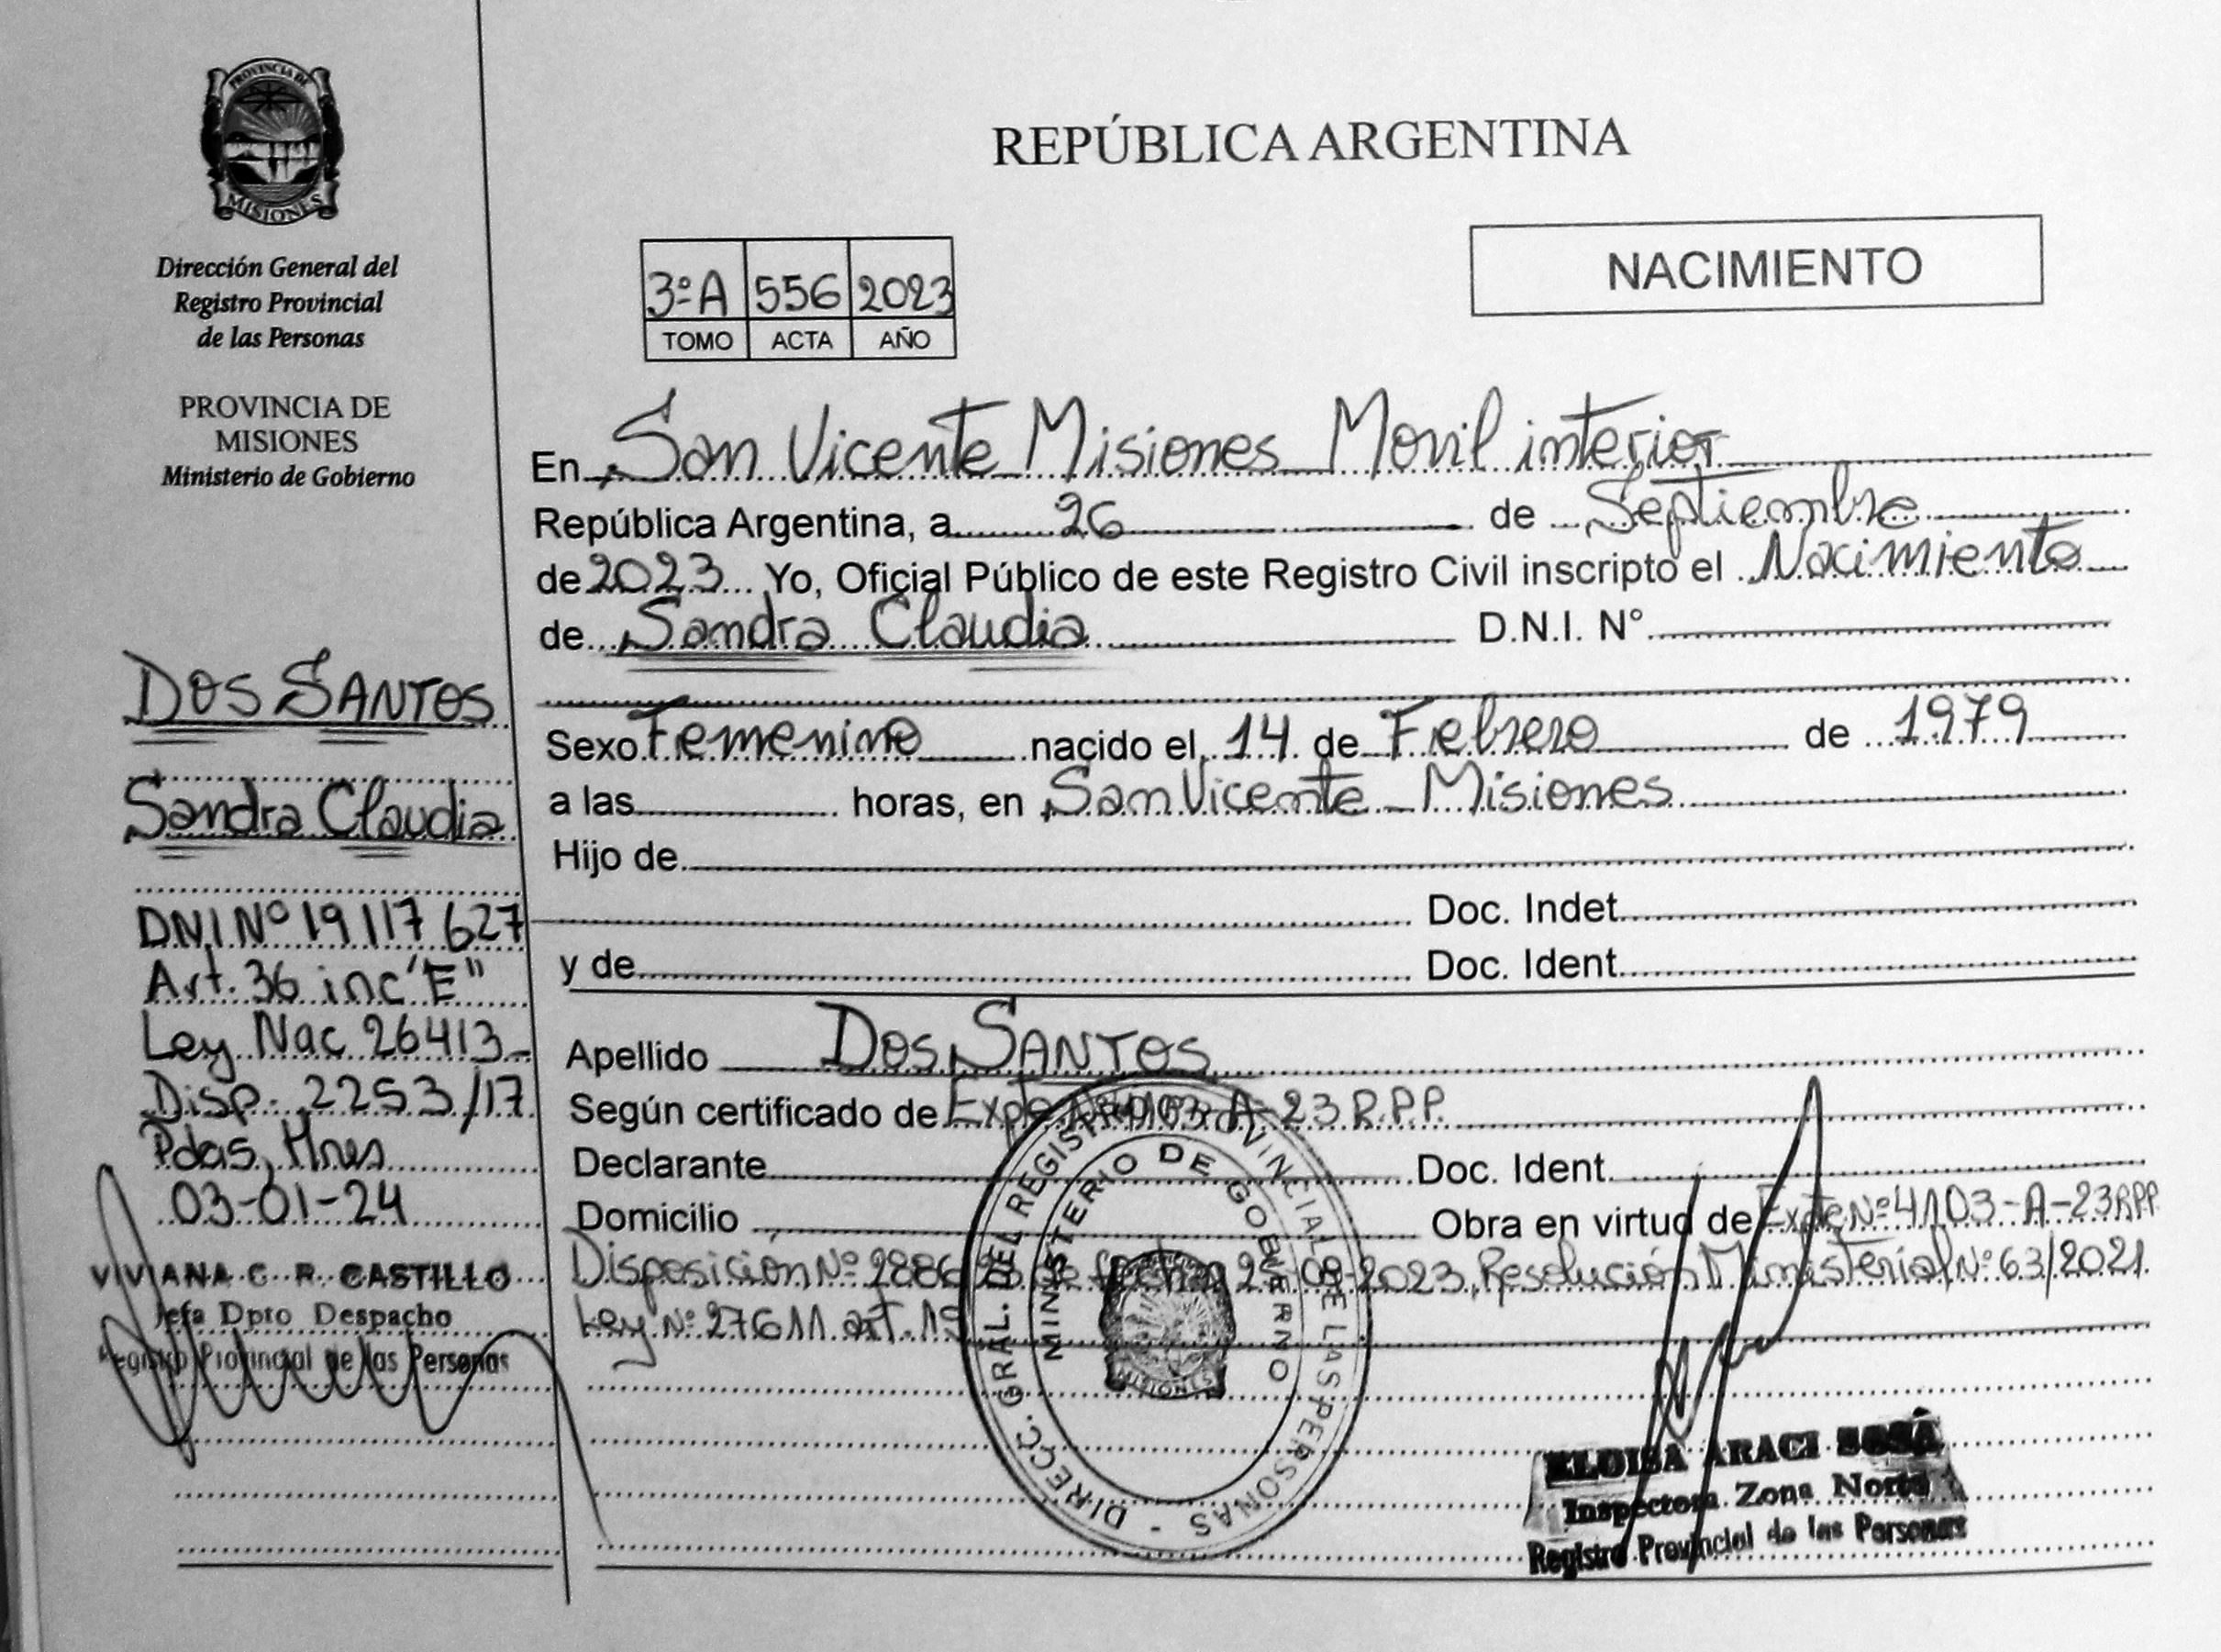 PROVINCIA DE
MISIONES
Dirección General del
Registro Provincial
de las Personas
PROVINCIA DE
MISIONES
Ministerio de Gobierno
DOS SANTOS
Sandra Claudia
DNI Nº 19 117 627
Art. 36 inc "E"
Ley Nac 26413-
Disp. 2253/17
Pdas, Mnes
03-01-24
VIVIANA C. R. CASTILLO
Jefa Dpto Despacho
Registro Provincial de las Personas
REPÚBLICA ARGENTINA
NACIMIENTO
3ºA 556 2023
TOMO ACTA AÑO
En San Vicente Misiones Movil interior
República Argentina, a 26 de Septiembre
de 2023 Yo, Oficial Público de este Registro Civil inscripto el Nacimiento
de Sandra Claudia D.N.I. N°
Sexo Femenino nacido el 14 de Febrero de 1979
a las horas, en San Vicente - Misiones
Hijo de
Doc. Indet.
y de Doc. Ident.
Apellido DOS SANTOS
Según certificado de Expte Nº 4103-A-23 R.P.P.
Declarante Doc. Ident.
Domicilio Obra en virtud de Expte Nº 4103-A-23RPP
Disposición Nº 2886 de fecha 09-2023, Resolución Ministerial Nº 63/2021.
Ley Nº 27611 art. 19
DIRECC. GRAL. DEL REGISTRO PROVINCIAL DE LAS PERSONAS -
MINISTERIO DE GOBIERNO
MISIONES
ELOISA ARACI SOSA
Inspectora Zona Norte
Registro Provincial de las Personas